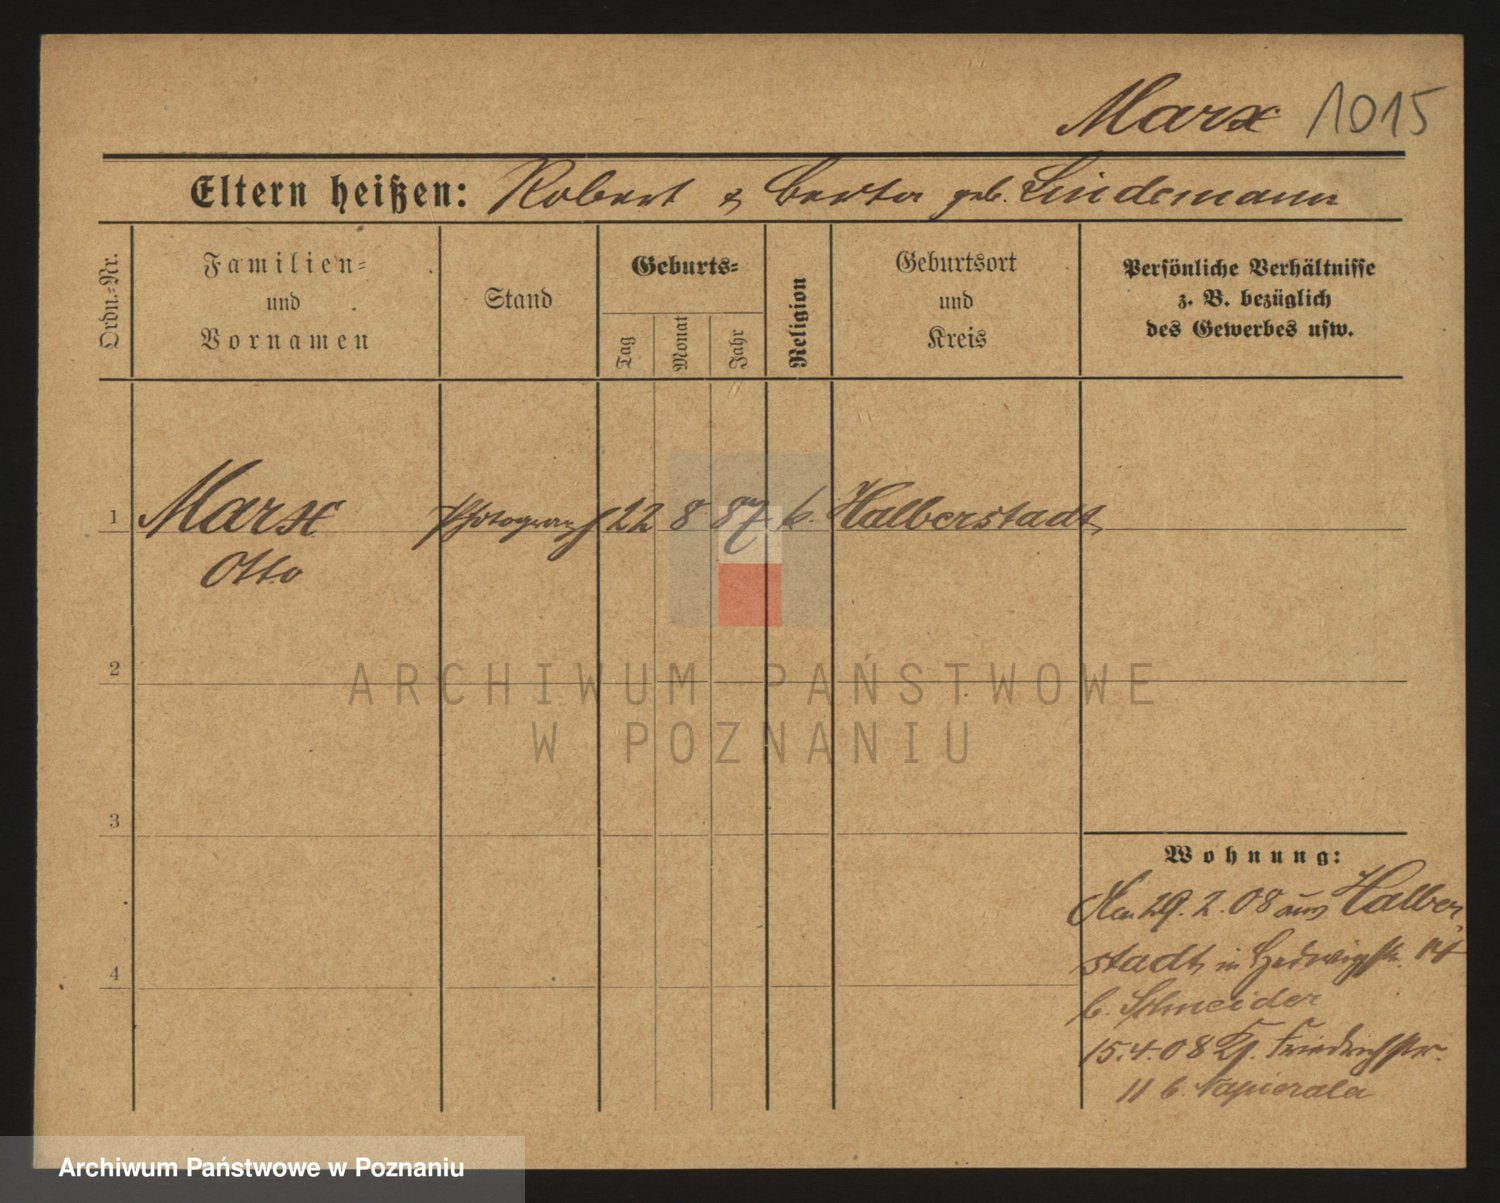 Marx 1015
Eltern heißen: Robert & Berta geb. Lindemann
Ordn.-Nr.
Familien-
und
Vornamen
Stand
Geburts-
Tag
Monat
Jahr
Religion
Geburtsort
und
Kreis
Persönliche Verhältnisse
z. B. bezüglich
des Gewerbes usw.
1 Marx Photograph 22 8 87 k. Halberstadt
Otto
2
3
4
ARCHIWUM PAŃSTWOWE
W POZNANIU
Wohnung:
29.2.08 aus Halber
stadt, in Hedwigstr. 14
b. Schneider
15.4.08 Friedrichstr.
11 b. Napierala
Archiwum Państwowe w Poznaniu